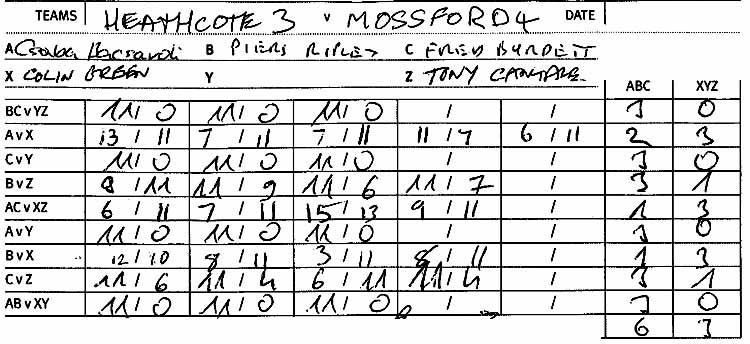 TEAMS HEATHCOTE 3 V MOSSFORD 4 DATE
A Csaba B PIERS RIPLEY C FRED BURDETT
X COLIN GREEN Y Z TONY
ABC XYZ
BCvYZ 11/0 11/0 11/0 / / 3 0
AvX 13/11 7/11 7/11 11/7 6/11 2 3
CvY 11/0 11/0 11/0 / / 3 0
BvZ 8/11 11/9 11/6 11/7 / 3 1
ACvXZ 6/11 7/11 15/13 9/11 / 1 3
AvY 11/0 11/0 11/0 / / 3 0
BvX 12/10 8/11 3/11 8/11 / 1 3
CvZ 11/6 11/4 6/11 11/4 / 3 1
ABvXY 11/0 11/0 11/0 / / 3 0
6 3